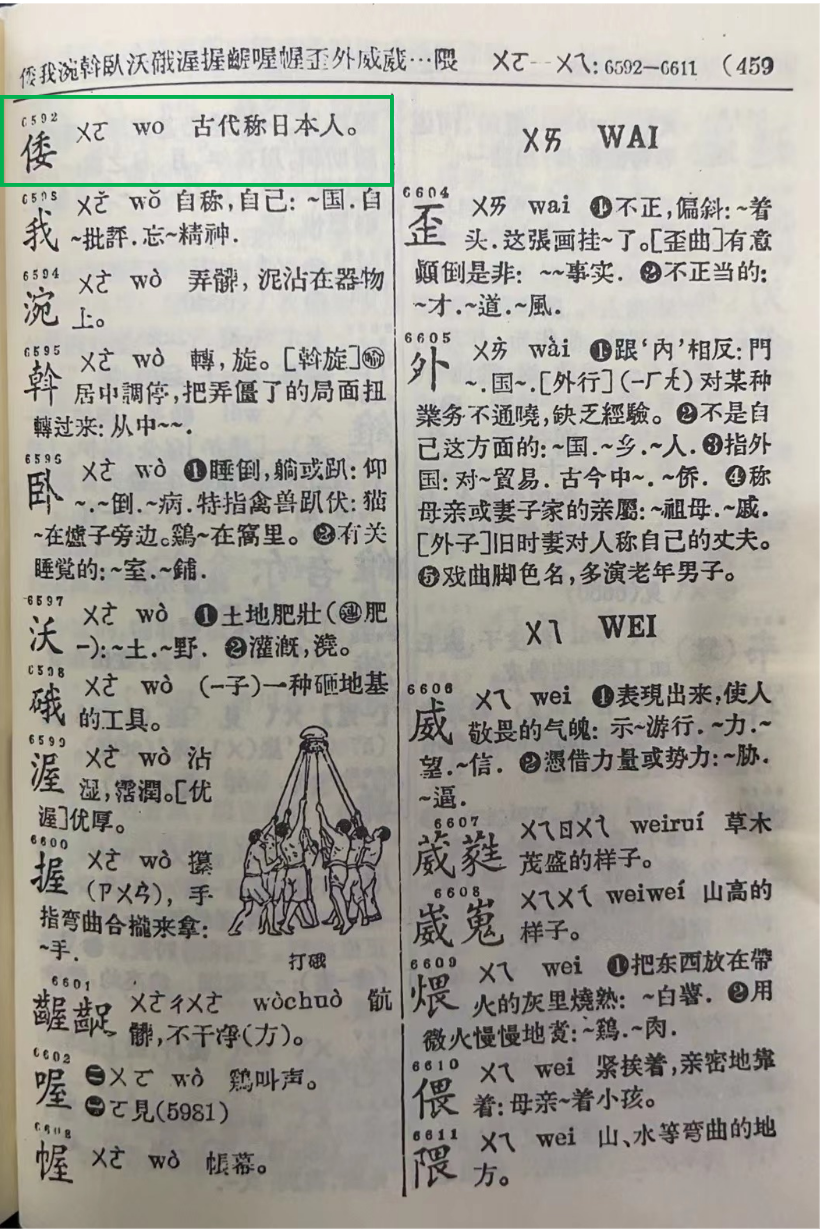 倭我涴斡臥沃硪渥握齷喔幄歪外威葳…隈 ㄨㄛ—ㄨㄟ: 6592—6611 (459
6592
倭 ㄨㄛ wo 古代称日本人。
我 ㄨㄛˇ wǒ 自称,自己: ~国.自
~批評.忘~精神.
6594
涴 ㄨㄛˋ wò 弄髒, 泥沾在器物
上。
6595
斡 ㄨㄛˋ wò 轉, 旋。[斡旋]㊀喻
居中調停,把弄僵了的局面扭
轉过来: 从中~~.
卧 ㄨㄛˋ wò ❶睡倒,躺或趴: 仰
~.~倒.~病.特指禽兽趴伏: 猫
~在爐子旁边。鷄~在窩里。 ❷有关
睡觉的:~室.~鋪.
6597
沃 ㄨㄛˋ wò ❶土地肥壯(連肥
—):~土.~野. ❷灌漑,澆。
硪 ㄨㄛˋ wò (—子)一种砸地基
的工具。
渥 ㄨㄛˋ wò 沾
湿,霑潤。[优
渥]优厚。
6600
握 ㄨㄛˋ wò 攥
(ㄗㄨㄢˋ), 手
指弯曲合攏来拿:
~手.
打硪
6601
齷齪 ㄨㄛˋㄔㄨㄛˋ wòchuò 骯
髒,不干凈(方)。
喔 ㊀ㄨㄛ wò 鷄叫声。
㊁ㄛ見(5981)
幄 ㄨㄛˋ wò 帳幕。
ㄨㄞ WAI
6604
歪 ㄨㄞ wai ❶不正,偏斜:~着
头.这張画挂~了。[歪曲]有意
顚倒是非: ~~事实. ❷不正当的:
~才.~道.~風.
6605
外 ㄨㄞˋ wài ❶跟‘內’相反: 門
~.国~.[外行](—ㄏㄤˊ) 对某种
業务不通曉,缺乏經驗。 ❷不是自
己这方面的:~国.~乡.~人.❸指外
国: 对~貿易. 古今中~.~侨. ❹称
母亲或妻子家的亲屬:~祖母.~戚.
[外子]旧时妻对人称自己的丈夫。
❺戏曲脚色名,多演老年男子。
ㄨㄟ WEI
6606
威 ㄨㄟ wei ❶表現出来,使人
敬畏的气魄: 示~游行. ~力.~
望.~信. ❷憑借力量或势力:~胁.
~逼.
6607
葳蕤 ㄨㄟㄖㄨㄟˊ weiruí 草木
茂盛的样子。
6608
崴嵬 ㄨㄟㄨㄟˊ weiweí 山高的
样子。
6609
煨 ㄨㄟ wei ❶把东西放在帶
火的灰里燒熟: ~白薯. ❷用
微火慢慢地煮:~鷄.~肉.
6610
偎 ㄨㄟ wei 紧挨着,亲密地靠
着:母亲~着小孩。
6611
隈 ㄨㄟ wei 山、水等弯曲的地
方。